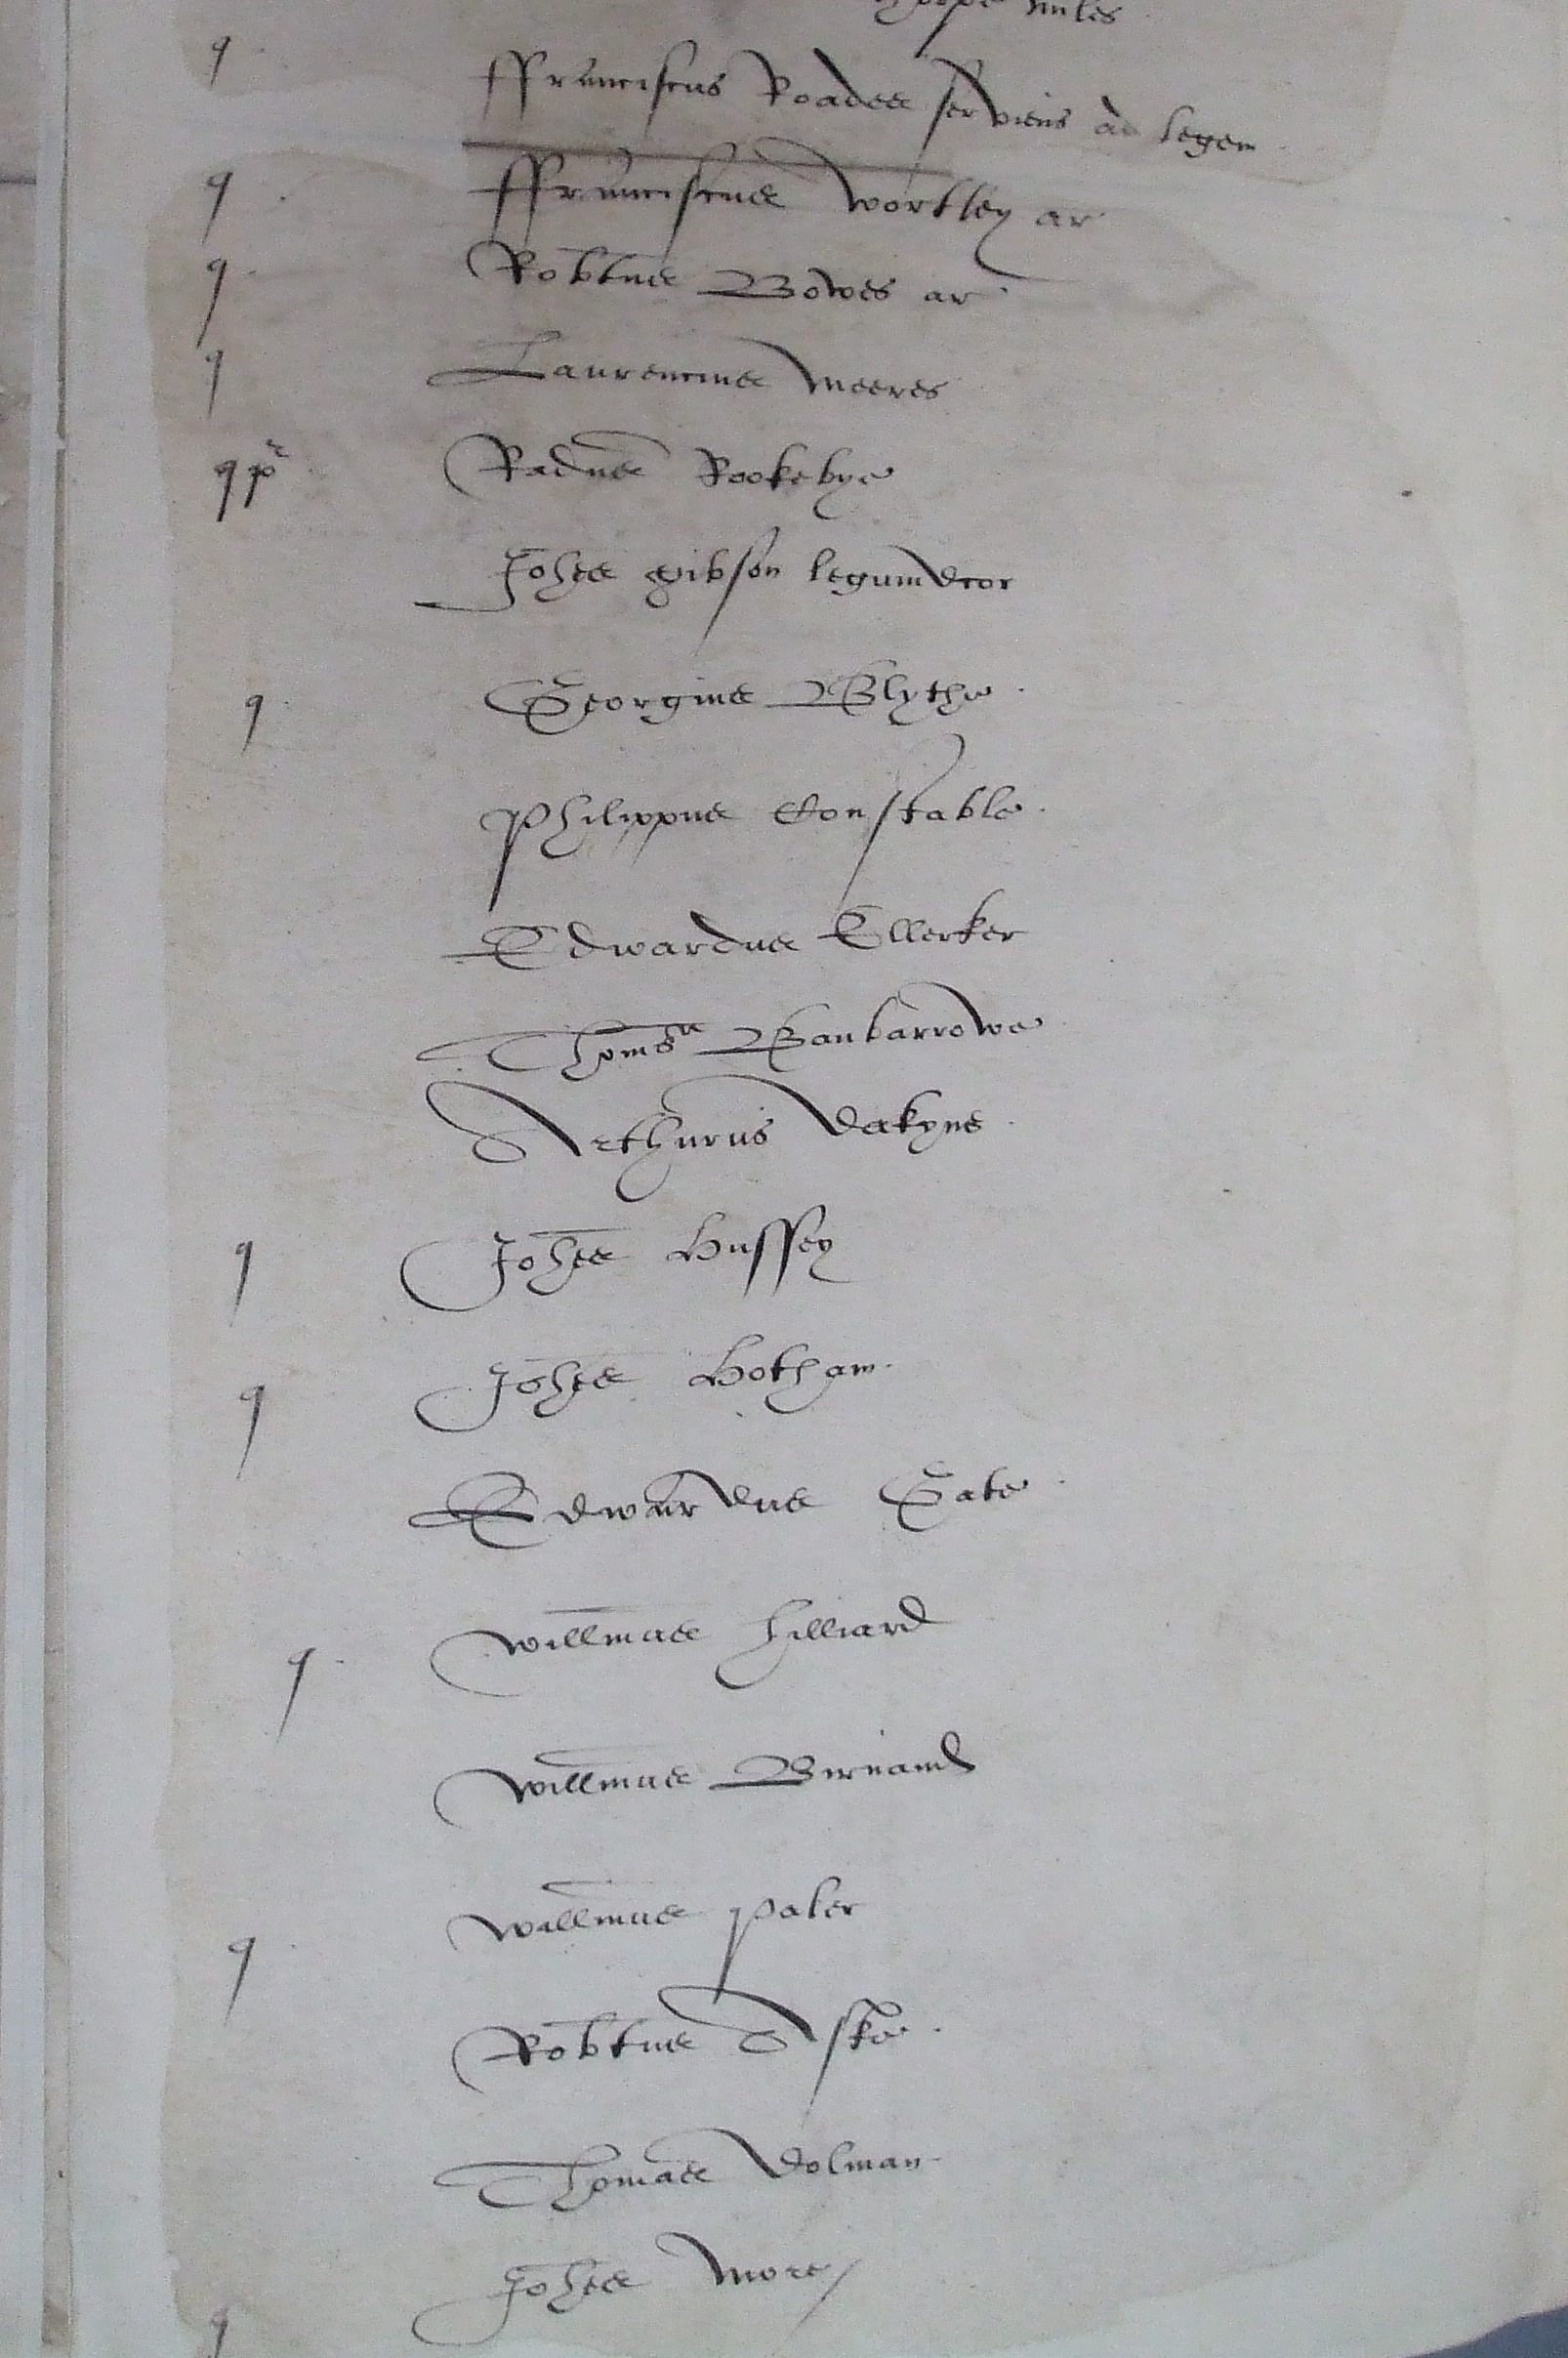 thorpe miles
q ffranciscus Roades serviens ad legem
q ffranciscus wortley ar
q Robtus Bowes ar
q Laurencius Meeres
q Radus Rookebye
Johes Gibson legum dcor
q Georgius Blythe
Philippus Constable
Edwardus Ellerker
Thoms Banbarrowe
Arthurus dakyns
q Johes Hussey
q Johes Hotham
Edwardus Gate
q willmus hilliard
willmus Birnand
q willmus Paler
Robtus Aske
Thomas dolman
Johes More
q